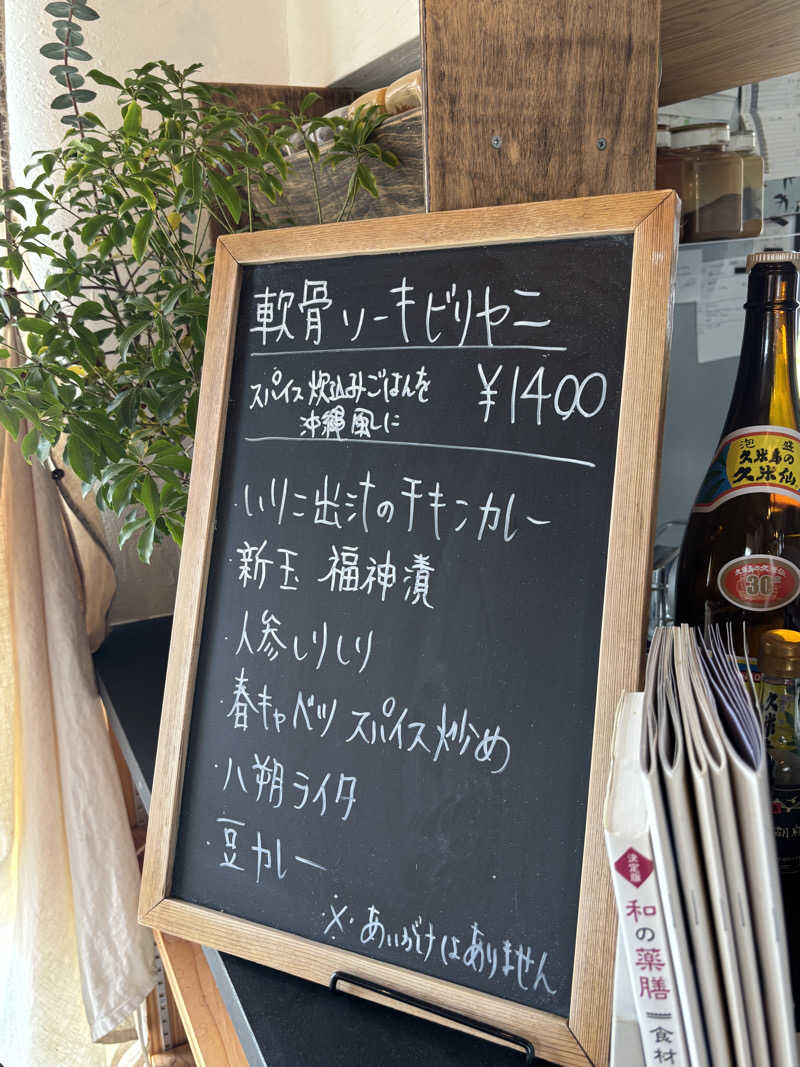 軟骨ソーキビリヤニ
スパイス炊込みごはんを
沖縄風に
¥1400
・いりこ出汁のチキンカレー
・新玉 福神漬
・人参しりしり
・春キャベツ スパイス炒め
・八朔ライタ
・豆カレー
※あいがけはありません
泡盛
久米島の
久米仙
30
決定版
和の薬膳
食材